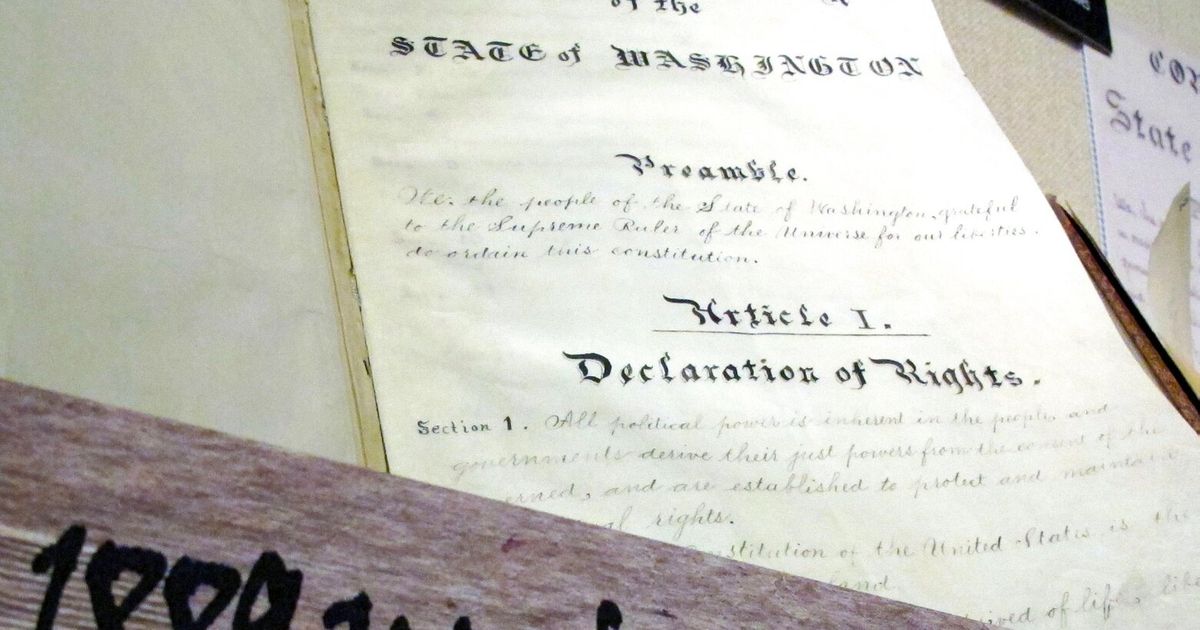 of the
STATE of WASHINGTON
Preamble.
We, the people of the State of Washington, grateful
to the Supreme Ruler of the Universe for our liberties,
do ordain this constitution.
Article I.
Declaration of Rights.
Section 1. All political power is inherent in the people, and
governments derive their just powers from the consent of the
erned, and are established to protect and maintain
al rights.
stitution of the United States is the
land
ived of life, li
State
1889